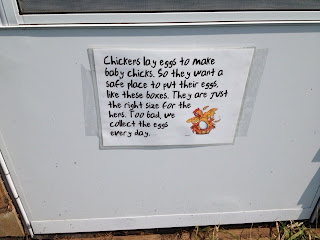 Chickens lay eggs to make
baby chicks. So they want a
safe place to put their eggs,
like these boxes. They are just
the right size for the
hens. Too bad, we
collect the eggs
every day.